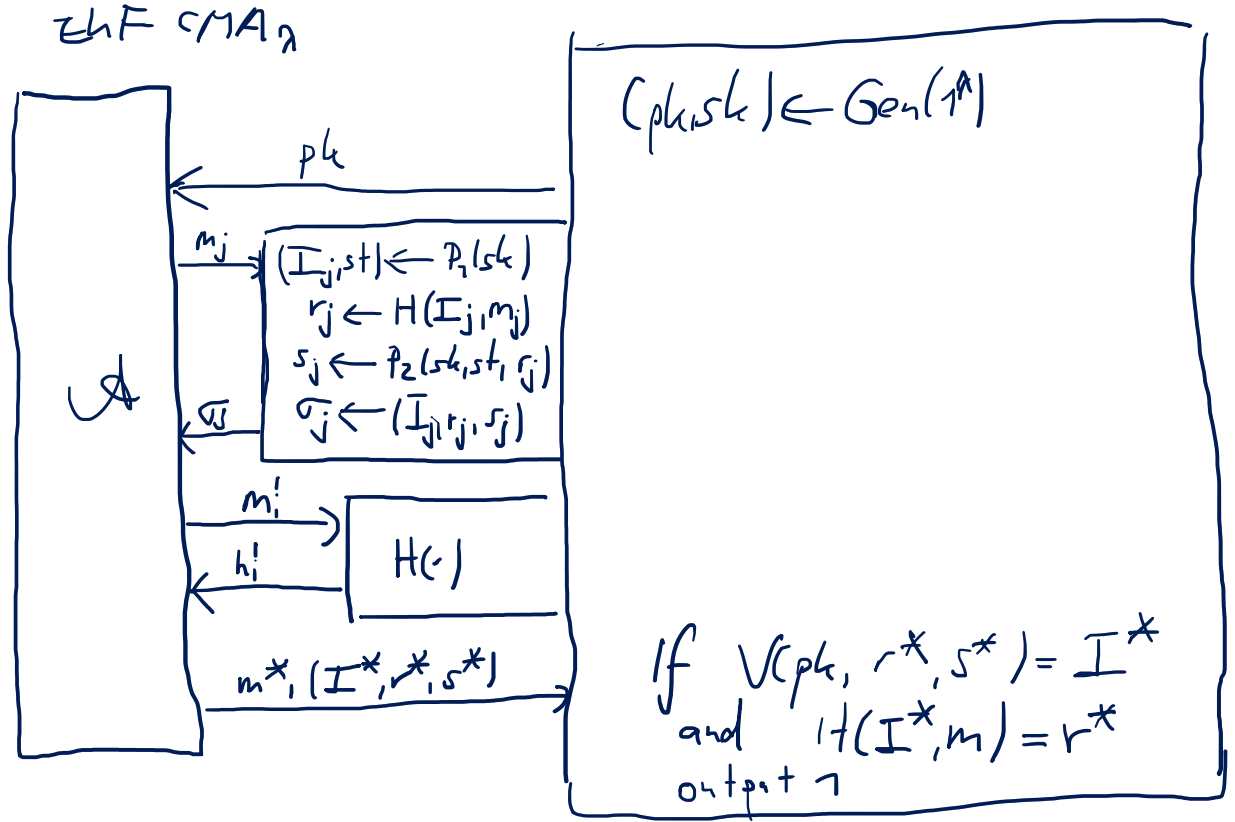 EUF CMAλ
(pk,sk) ← Gen(1^λ)
pk
m_j
(I_j,st) ← P_1(sk)
r_j ← H(I_j,m_j)
s_j ← P_2(sk,st,r_j)
σ_j ← (I_j,r_j,s_j)
A
σ_j
m_i'
H(·)
h_i'
m*, (I*,r*,s*)
If V(pk, r*,s*) = I*
and H(I*,m) = r*
output 1